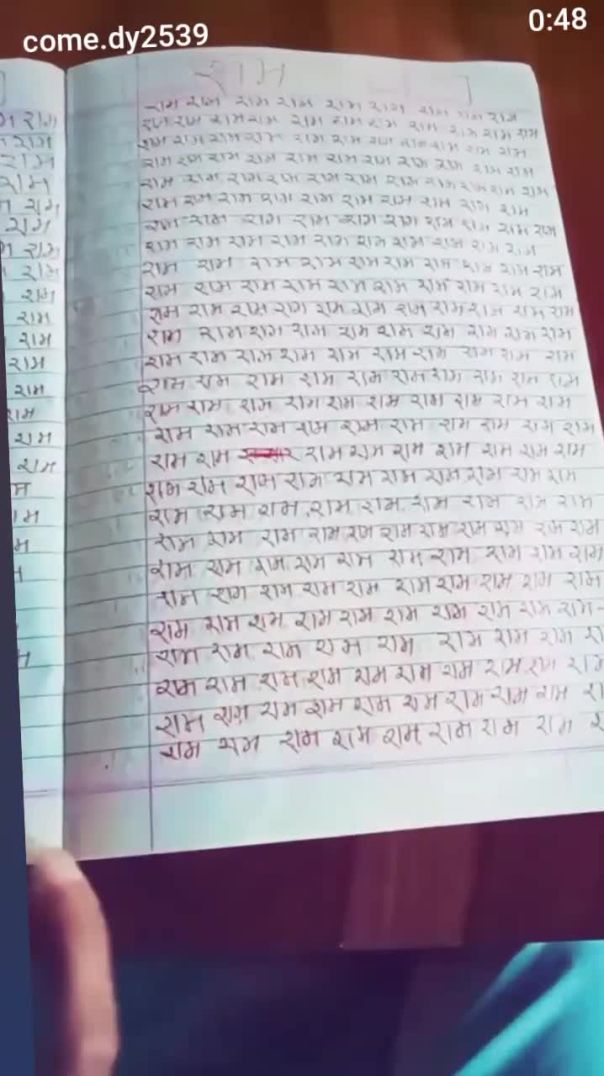 come.dy2539
0:48
राम
राम
राम
राम
राम
राम
राम
राम
राम
राम
राम
राम
राम
राम
राम
राम
राम
राम राम राम राम राम राम राम राम राम
राम राम राम राम राम राम राम राम राम राम राम
राम राम राम राम राम राम राम राम राम राम राम
राम राम राम राम राम राम राम राम राम राम राम
राम राम राम राम राम राम राम राम राम राम राम
राम राम राम राम राम राम राम राम राम राम
राम राम राम राम राम राम राम राम राम राम
राम राम राम राम राम राम राम राम राम राम
राम राम राम राम राम राम राम राम राम राम
राम राम राम राम राम राम राम राम राम राम
राम राम राम राम राम राम राम राम राम राम राम
राम राम राम राम राम राम राम राम राम राम
राम राम राम राम राम राम राम राम राम राम
राम राम राम राम राम राम राम राम राम राम
राम राम राम राम राम राम राम राम राम राम
राम राम राम राम राम राम राम राम राम राम
राम राम राम राम राम राम राम राम राम
राम राम राम राम राम राम राम राम राम राम
राम राम राम राम राम राम राम राम राम
राम राम राम राम राम राम राम राम राम राम राम
राम राम राम राम राम राम राम राम राम राम
राम राम राम राम राम राम राम राम राम राम
राम राम राम राम राम राम राम राम राम राम
राम राम राम राम राम राम राम राम
राम राम राम राम राम राम राम राम राम राम
राम राम राम राम राम राम राम राम राम
राम राम राम राम राम राम राम राम